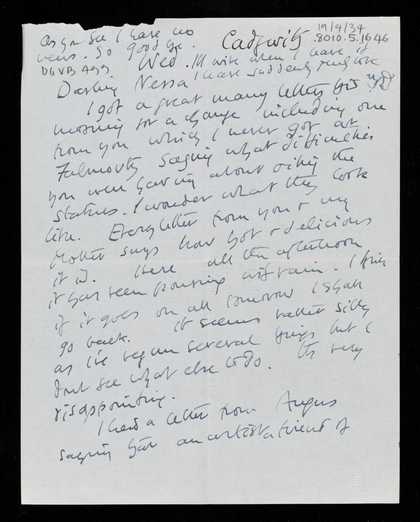 As you see I have no
news. So good bye.
Cadgwith
19/4/34
8010.5.1646
DGVB Agg
Wed. I'll write when I leave it
Darling Nessa I have suddenly
I got a great many letters this
morning for a change including one
from you which I never got at
Falmouth, saying what difficulties
you were having about the
statues. I wonder what they look
like. Every letter from you & my
Mother says how hot & delicious
it is. Here all this afternoon
it has been pouring with rain. I think
if it goes on all tomorrow I shall
go back. It seems rather silly
as I've begun several things but I
don't see what else to do. It's very
disappointing.
I had a letter from Angus
saying that an artist friend of